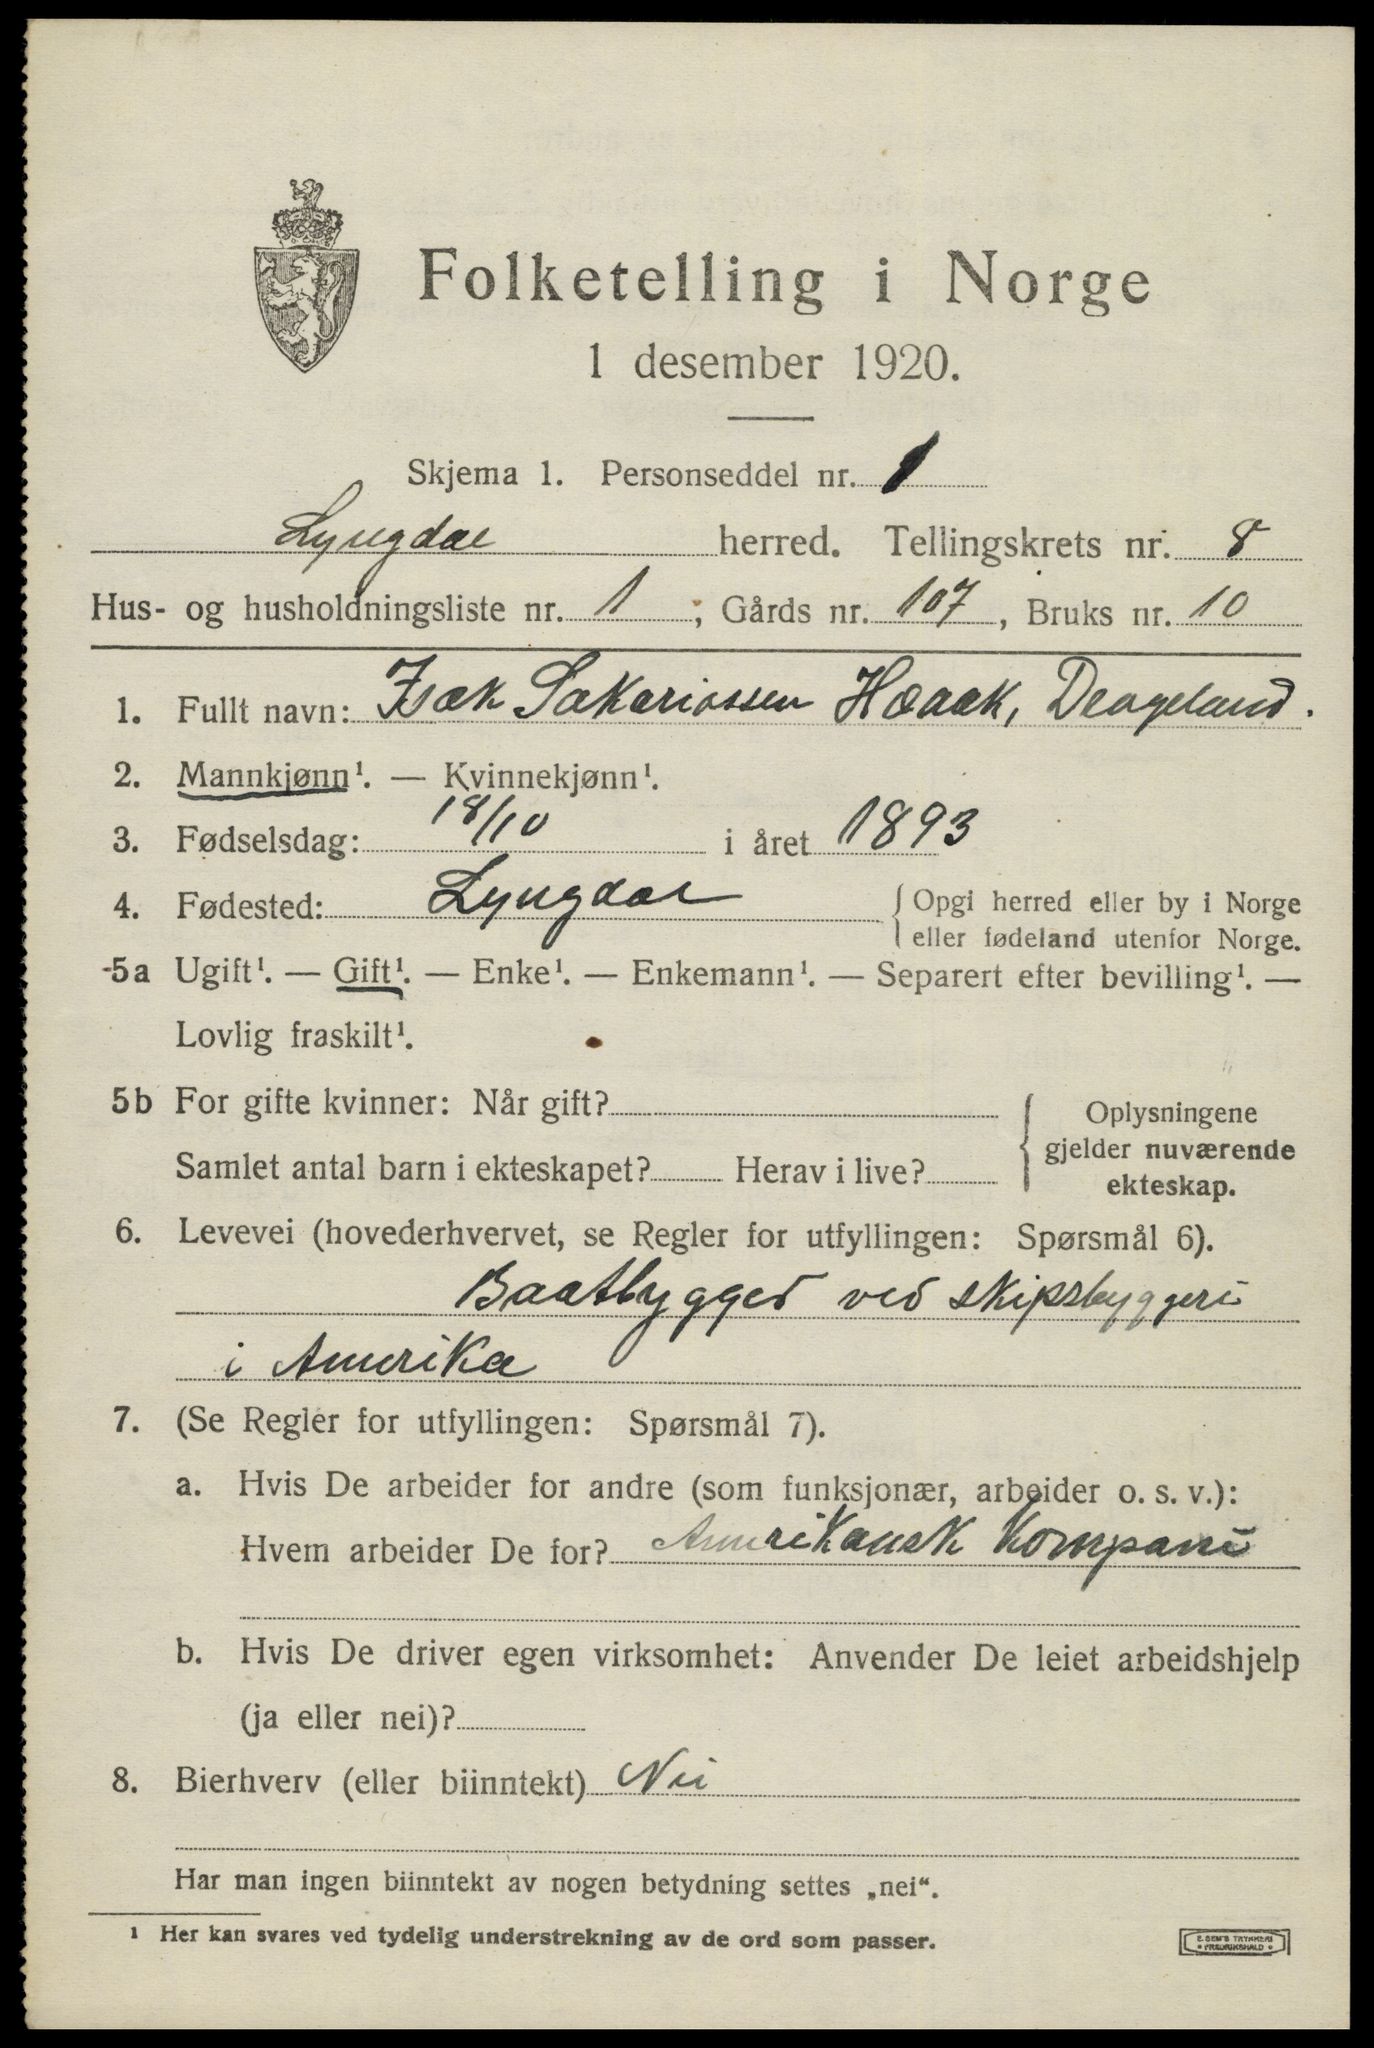 Folketelling i Norge
1 desember 1920.
Skjema 1. Personseddel nr. 1
Lyngdal herred. Tellingskrets nr. 8
Hus- og husholdningsliste nr. 1; Gårds nr. 107, Bruks nr. 10
1. Fullt navn: Isak Sakariassen Haaak, Drageland.
2. Mannkjønn¹. — Kvinnekjønn¹.
3. Fødselsdag: 18/10 i året 1893
4. Fødested: Lyngdal { Opgi herred eller by i Norge
eller fødeland utenfor Norge.
5a Ugift¹. — Gift¹. — Enke¹. — Enkemann¹. — Separert efter bevilling¹. —
Lovlig fraskilt¹.
5b For gifte kvinner: Når gift?
Samlet antal barn i ekteskapet? Herav i live?
Oplysningene
gjelder nuværende
ekteskap.
6. Levevei (hovederhvervet, se Regler for utfyllingen: Spørsmål 6).
Baatbygger ved skipsbyggeri
i Amerika
7. (Se Regler for utfyllingen: Spørsmål 7).
a. Hvis De arbeider for andre (som funksjonær, arbeider o. s. v.):
Hvem arbeider De for? Amerikansk Kompani
b. Hvis De driver egen virksomhet: Anvender De leiet arbeidshjelp
(ja eller nei)?
8. Bierhverv (eller biinntekt) Nei
Har man ingen biinntekt av nogen betydning settes „nei“.
¹ Her kan svares ved tydelig understrekning av de ord som passer.
E. SEM'S TRYKKERI
• FREDRIKSHALD •